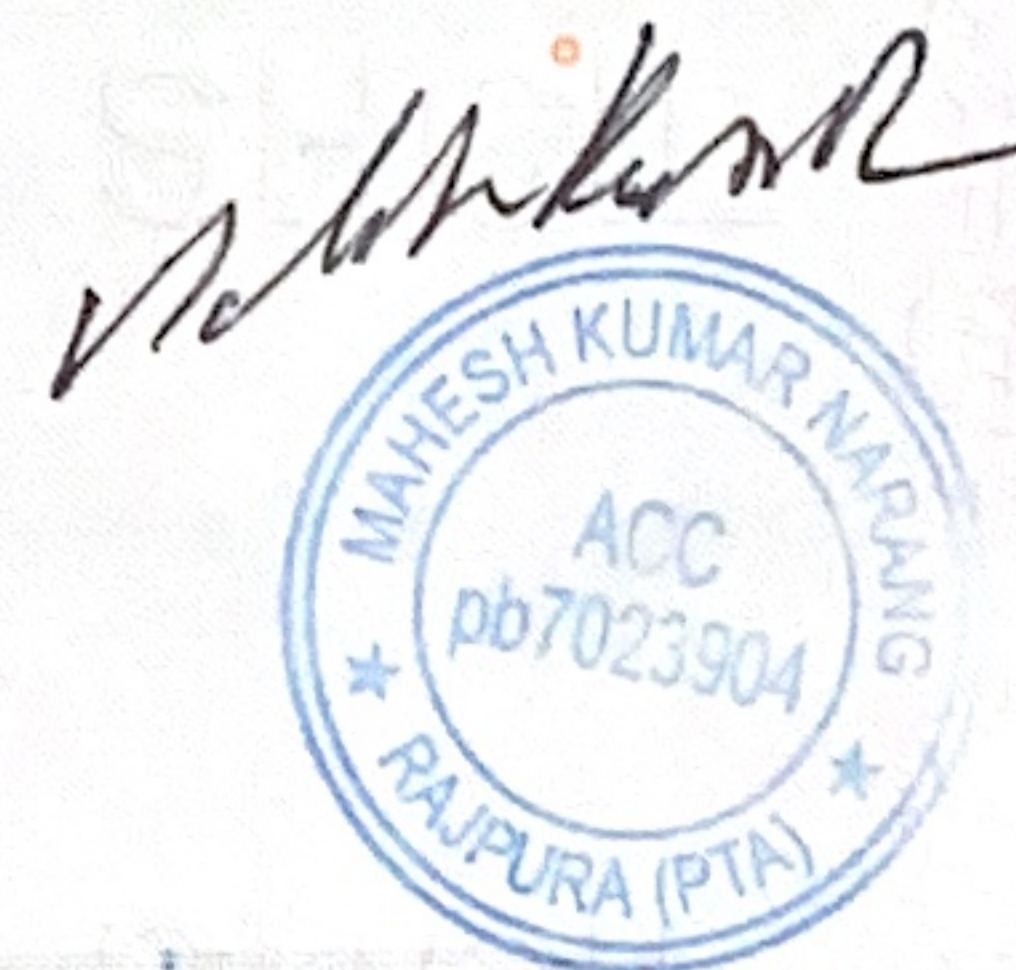 MAHESH KUMAR NARANG
ACC
pb7023904
★ RAJPURA (PTA) ★